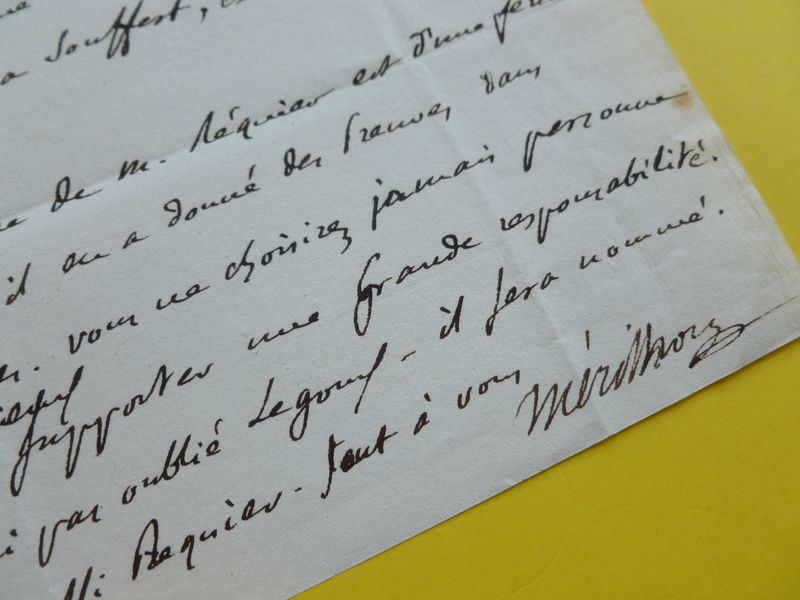 a souffert,
de m. Réquier est d'une
il en a donné des preuves dans
vous ne choisirez jamais personne
supporter une grande responsabilité.
pas oublié Legonf - il sera nommé.
Requier - tout à vous
Mérilhou